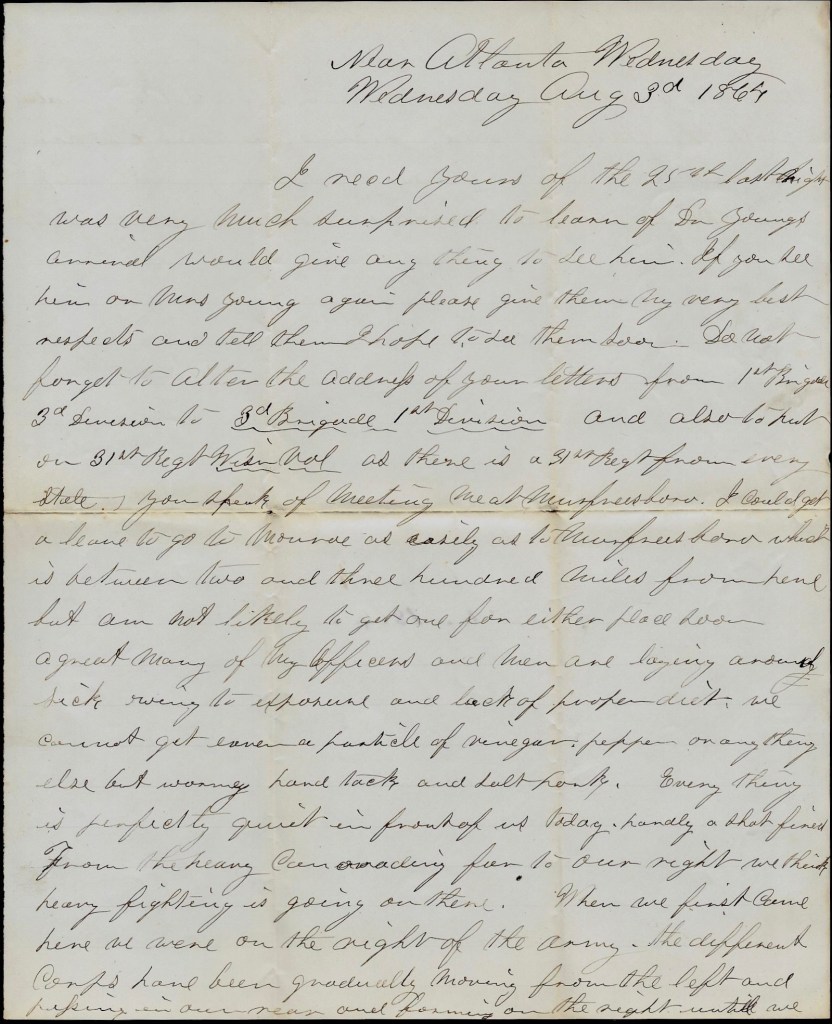 Near Atlanta Wednesday
Wednesday Aug 3d 1864
I recd yours of the 25st last night
was very much surprised to learn of Dr Youngs
arrival would give any thing to see him. If you see
him or Mrs Young again please give them my very best
respects and tell them I hope to see them soon. Do not
forget to alter the address of your letters from 1st Brigade
3d Division to 3d Brigade 1st Division and also to put
on 31st Regt Wisn Vol as there is a 31st Regt from every
state. You speak of meeting me at Murfreesboro. I could get
a leave to go to Monroe as easily as to Murfreesboro which
is between two and three hundred miles from here
but am not likely to get one for either place soon
a great many of my officers and men are laying around
sick owing to exposure and lack of proper diet. we
cannot get even a particle of vinegar. pepper or any thing
else but wormy hard tack and salt pork. Every thing
is perfectly quiet in front of us today. hardly a shot fired
From the heavy canonading far to our right we think
heavy fighting is going on there. When we first came
here we were on the right of the army. the different
Corps have been gradually moving from the left and
passing in our rear and forming on the right untill we